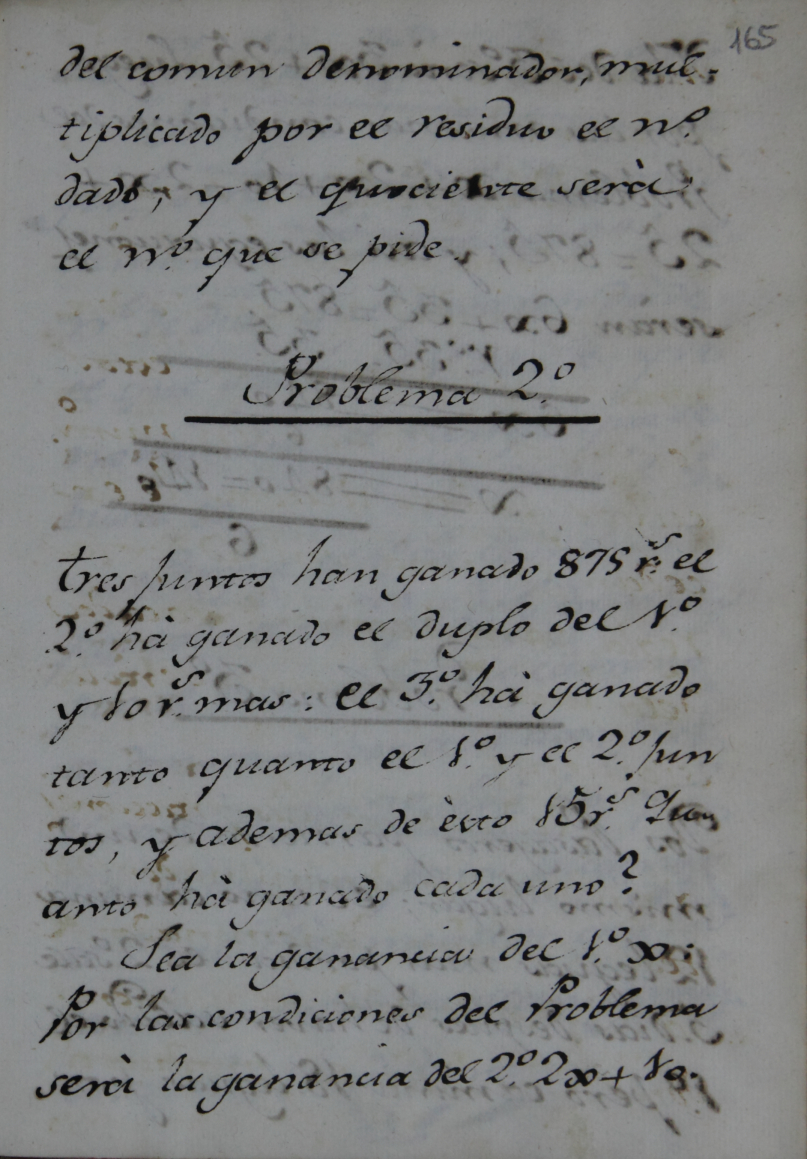 165
del comun denominador, mul-
tiplicado por el residuo el nº
dado, y el quociente serà
el nº que se pide.
Problema 2º
tres juntos han ganado 875 r.s el
2º hà ganado el duplo del 1º
y 10 r.s mas: el 3º hà ganado
tanto quanto el 1º y el 2º jun
tos, y ademas de èsto 15 r.s Qu
anto hà ganado cada uno?
Sea la ganancia del 1º x:
Por las condiciones del Problema
serà la ganancia del 2º 2x + 10.